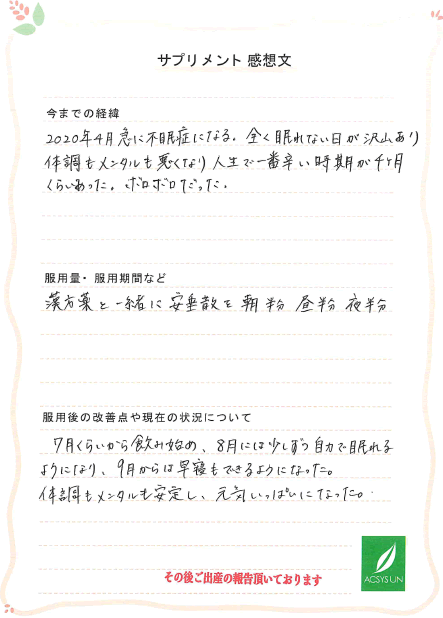 サプリメント 感想文
今までの経緯
2020年4月急に不眠症になる。全く眠れない日が沢山あり
体調もメンタルも悪くなり人生で一番辛い時期が4ヶ月
くらいあった。ボロボロだった。
服用量・服用期間など
漢方薬と一緒に安垂散を朝半分 昼半分 夜半分
服用後の改善点や現在の状況について
7月くらいから飲み始め、8月には少しずつ自力で眠れる
ようになり、9月からは早寝もできるようになった。
体調もメンタルも安定し、元気いっぱいになった。
その後ご出産の報告頂いております
ACSYSUN